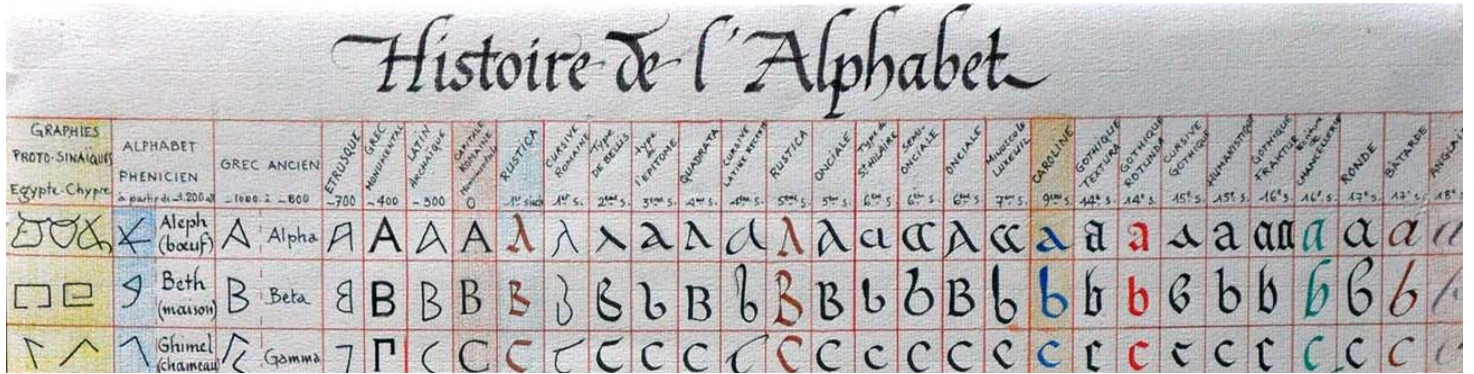 Histoire de l'Alphabet
GRAPHIES PROTO-SINAÏQUES Egypte-Chypre
ALPHABET PHENICIEN à partir de -1.200 av
GREC ANCIEN -1000 à -600
ETRUSQUE -700
GREC MONUMENTAL -400
LATIN ARCHAÏQUE -300
CAPITALE ROMAINE Monumentale 0
RUSTICA 1er siècle
CURSIVE ROMAINE 1er s.
Type DE BELLIS 2ème s.
type l'EPITOME 3ème s.
QUADRATA 4ème s.
CURSIVE LATINE 4ème s.
RUSTICA 5ème s.
ONCIALE 5ème s.
Type de St HILAIRE 6ème s
SEMI-ONCIALE 6ème s.
ONCIALE 6ème s.
Minuscule LUXEUIL 7ème s.
CAROLINE 9ème s.
GOTHIQUE TEXTURA 14e s.
GOTHIQUE ROTUNDA 14e s.
CURSIVE GOTHIQUE 15e s.
HUMANISTIQUE 15e s.
GOTHIQUE FRAKTUR 16e s.
CHANCELLERIE 16e s.
RONDE 17e s.
BATARDE 17e s.
ANGLAI 18e s
Aleph (bœuf) A Alpha A A A A A A A A a A a A A a a A a a a a a a a a a a a
Beth (maison) B Beta B B B B B B B b B b B B b b B b b b b b b b b b b
Ghimel (chameau Gamma Γ C C C C C C C C C C C C C C C c c c c c c c c c